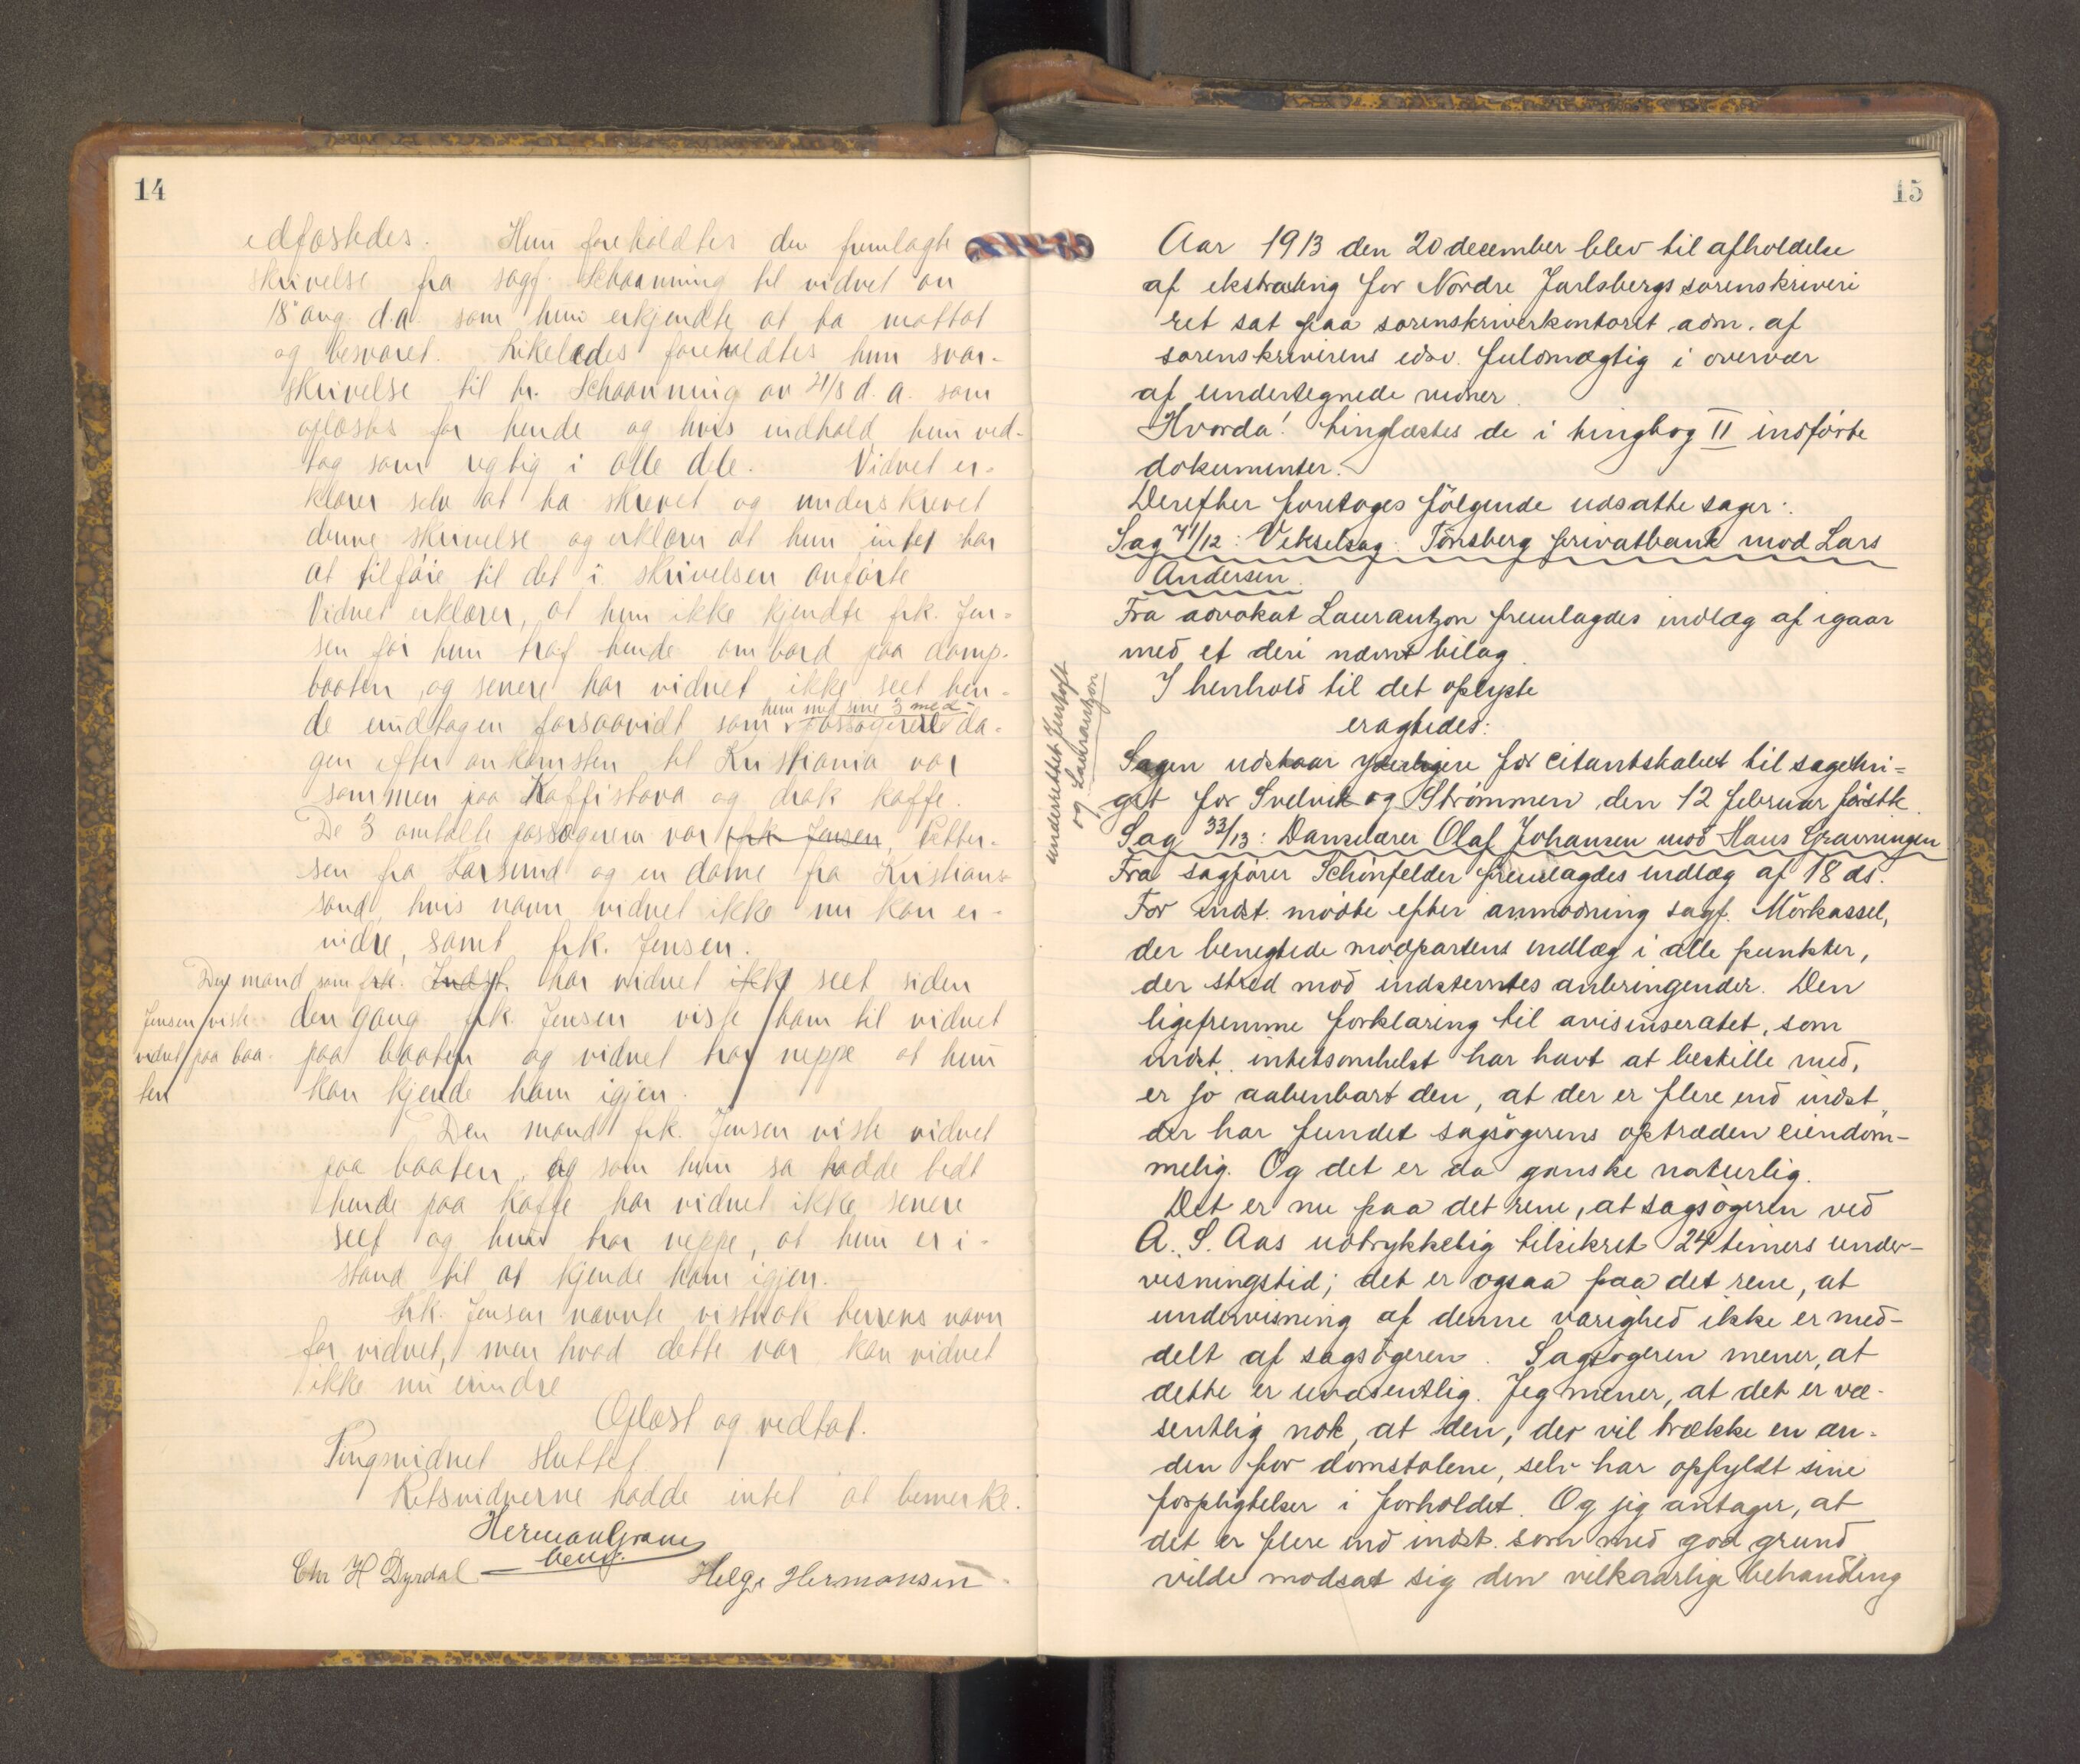 14
edfæstedes. Hun foreholdtes den fremlagte
skrivelse fra sagf. Schaanning til vidnet av
18 aug. d.a. som hun erkjendte at ha mottat
og besvaret. Likeledes foreholdtes hun svar-
skrivelse til hr. Schaanning av 21/8 d. a. som
oplæstes for hende og hvis indhold hun ved-
tog som rigtig i alle dele. Vidnet er-
klærer selv at ha skrevet og underskrevet
denne skrivelse og erklærer at hun intet har
at tilføie til det i skrivelsen anførte
Vidnet erklærer, at hun ikke kjendte frk. Jen-
sen før hun traf hende ombord paa damp-
baaten, og senere har vidnet ikke seet hen-
hun med sine 3 med-
de undtagen forsaavidt som passagerer da-
gen efter ankomsten til Kristiania var
sammen paa Kaffistova og drak kaffe.
De 3 omtalte passagerer var frk Jensen, Petter-
sen fra Larsund og en dame fra Kristian-
sand, hvis navn vidnet ikke nu kan er-
indre, samt frk. Jensen.
Den mand som frk. Indst. har vidnet ikke seet siden
Jensen viste den gang frk. Jensen viste ham til vidnet
vidnet paa baa- paa baaten og vidnet har neppe at hun
ten kan kjende ham igjen.
Den mand frk. Jensen viste vidnet
paa baaten, og som hun sa hadde bedt
hende paa kaffe har vidnet ikke senere
seet og hun tror neppe, at hun er i-
stand til at kjende ham igjen.
Frk. Jensen nævnte vistnok herrens navn
for vidnet, men hvad dette var kan vidnet
ikke nu erindre
Oplæst og vedtat.
Tingsvidnet sluttet.
Retsvidnerne hadde intet at bemerke.
Herman Gram
bem.
Chr H Dyrdal
Helge Hermansen
15
Aar 1913 den 20 december blev til afholdelse
af ekstrating for Nordre Jarlsbergs sorenskriveri
ret sat paa sorenskriverkontoret adm. af
sorenskriverens edsv. fuldmægtig i overvær
af undertegnede vidner.
Hvorda! tinglæstes de i tingbog II indførte
dokumenter.
Derefter foretoges følgende udsatte sager:
Sag 41/12: Vekselsag: Tönsberg privatbank mod Lars
Andersen.
Fra advokat Laurantzon fremlagdes indlæg af igaar
med et deri nævnt bilag.
I henhold til det oplyste
eragtedes:
Sagen udstaar yderligere for citantskabet til sagetin-
get for Svelvik og Strømmen den 12 februar førstk.
underrettet
og Laurantzon
Sag 33/13: Danselærer Olaf Johansen mod Hans Gravningen
Fra sagfører Schönfelder fremlagdes indlæg af 18 ds.
For indst. mödte efter anmodning sagf. Mörkassel,
der benegtede modpartens indlæg i alle punkter,
der stred mod indstevntes anbringender. Den
ligefremme forklaring til avisinseratet, som
indst. intetsomhelst har havt at bestille med,
er jo aabenbart den, at der er flere end indst.,
der har fundet sagsøgerens optræden eiendom-
melig. Og det er da ganske naturlig.
Det er nu paa det rene, at sagsøgeren ved
A. S. Aas udtrykkelig tilsikret 24 timers under-
visningstid; det er ogsaa paa det rene, at
undervisning af denne varighed ikke er med-
delt af sagsøgeren. Sagsøgeren mener, at
dette er uvæsentlig. Jeg mener, at det er væ-
sentlig nok, at den, der vil trække en an-
den for domstolene, selv har opfyldt sine
forpligtelser i forholdet. Og jeg antager, at
det er flere end indst. som med god grund
vilde modsat sig den vilkaarlige behandling